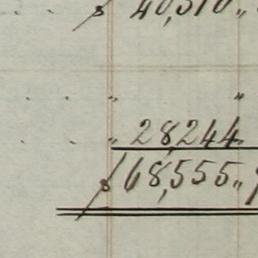 $ 40,310 "
" "
" 28,244
$ 68,555 "